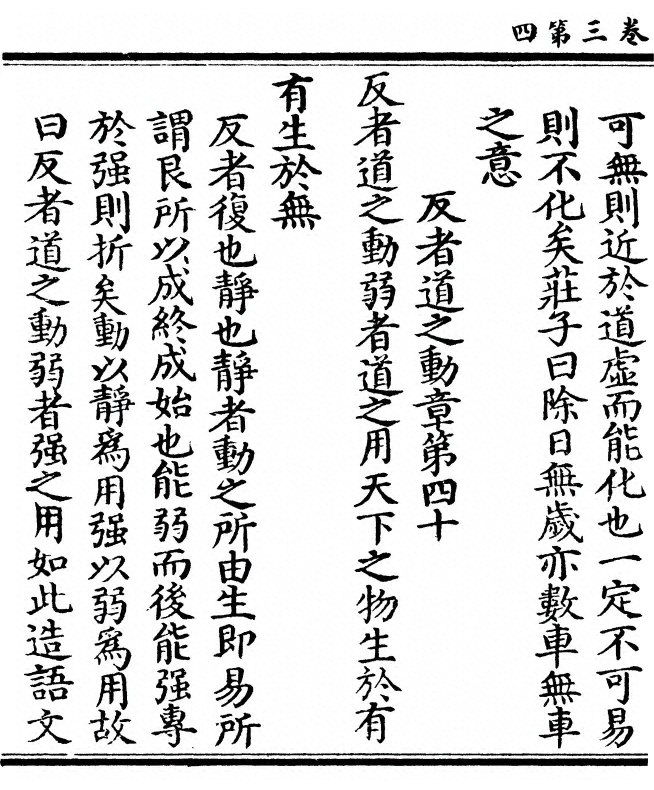 卷三第四
可無則近於道虛而能化也一定不可易
則不化矣莊子曰除日無歲亦數車無車
之意
反者道之動章第四十
反者道之動弱者道之用天下之物生於有
有生於無
反者復也靜也靜者動之所由生即易所
謂艮所以成終成始也能弱而後能强專
於强則折矣動以靜爲用强以弱爲用故
曰反者道之動弱者强之用如此造語文